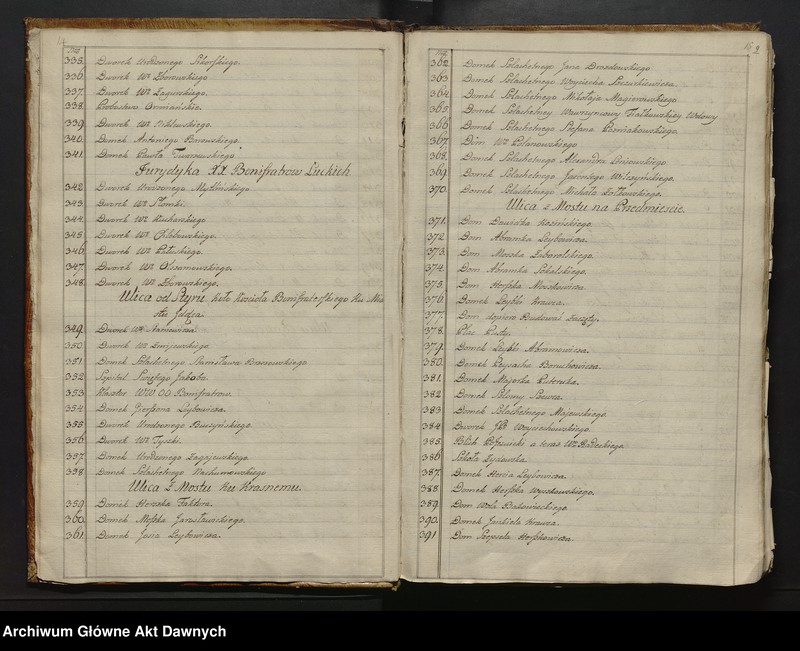 335. Dworek Urodzonego Sikorskiego.
336. Dworek Wo Zborowskiego
337. Dworek Wo Zagurskiego.
338. Probostwo Ormiańskie.
339. Dworek Wo Niklewskiego.
340. Domek Antoniego Banowskiego.
341. Domek Pawła Tuarowskiego
Jurydyka XX Bonifratrów Łuckich
342. Dworek Urodzonego
343. Dworek Wo Słomki.
344. Dworek Wo Kucharskiego
345. Dworek Wo Chlebowskiego.
346. Dworek Wo
347. Dworek Wo Olszamowskiego.
348. Dworek Wo Zborowskiego.
Ulica od Styru koło Kościoła Bonifraterskiego ku
349. Dworek Wo
350. Dworek Wo Zmijewskiego
351. Domek Szlachetnego Stanisława
352. Szpital Swiętego Jakoba.
353. Klasztor WW OO Bonifratrow.
354. Domek Leybowicza.
355. Dworek Urodzonego Buszyńskiego.
356. Dworek Wo Tyski.
357. Domek Urodzonego Zagajewskiego.
358. Domek Szlachetnego
Ulica z Mostu ku Krasnemu.
359. Domek Herszka Faktora.
360. Domek Moszka Jarosławickiego.
361. Domek Josia Leybowicza.
362. Domek Szlachetnego Jana Drozdowskiego
363. Domek Szlachetnego Woyciecha
364. Domek Szlachetnego Mikołaja Magierowskiego
365. Domek Szlachetney Wawrzyncowy Fiałkowskiey Wdowy
366. Domek Szlachetnego Stefana
367. Dom Wo Polanowskiego
368. Domek Szlachetnego Alexandra
369. Domek Szlachetnego Jacentego Wilczyńskiego.
370. Domek Szlachetnego Michała Żółkowskiego.
Ulica z Mostu na Przedmieście.
371. Dom Dawidka Kozińskiego.
372. Dom Abramka Leybowicza.
373. Dom Moszka Zaborolskiego.
374. Dom Abramka Sokalskiego.
375. Dom Herszka Moszkowicza.
376. Domek Leybki Krawca.
377. Dom dopiero Budować zaczęty.
378. Plac Pusty.
379. Domek Leybki Abramowicza.
380. Domek Leyzacha Boruchowicza.
381. Domek Majorka
382. Domek Szlomy Szewca.
383. Domek Szlachetnego Majewskiego.
384. Dworek JP Woyciechowskiego.
385. a teraz Wo
386. Szkoła Żydowska.
387. Domek Leybowicza.
388. Domek Herszka Wyszkowskiego.
389. Dom Wola
390. Domek Jankiela Krawca.
391. Dom Herszkowicza.
Archiwum Główne Akt Dawnych